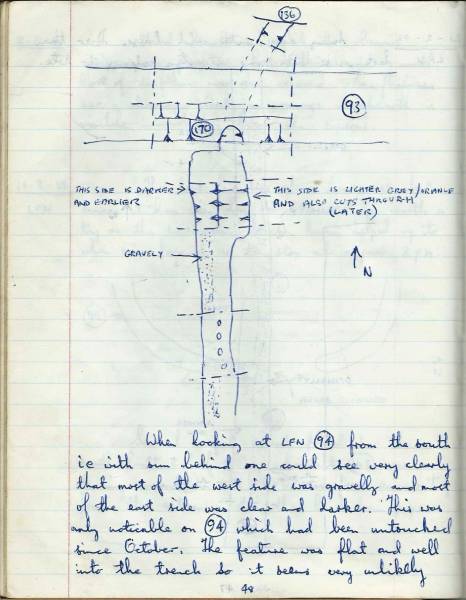 136
93
170
THIS SIDE IS DARKER
AND EARLIER
THIS SIDE IS LIGHTER GREY/ORANGE
AND ALSO CUTS THROUGH
(LATER)
GRAVELY
N
When looking at LFN 94 from the south
ie with sun behind one could see very clearly
that most of the west side was gravelly and most
of the east side was clear and darker. This was
only noticable on 94 which had been untouched
since October. The feature was flat and well
into the trench so it seems very unlikely
48